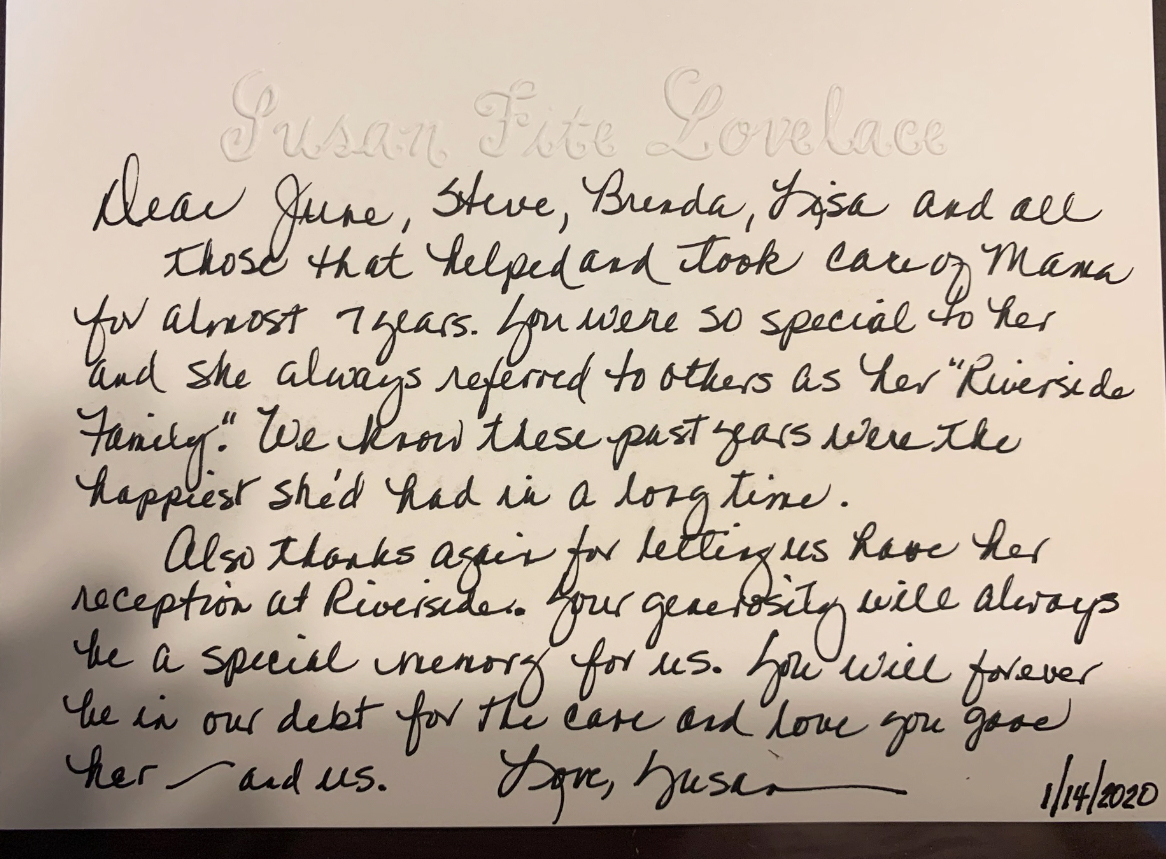 Susan Fite Lovelace
Dear June, Steve, Brenda, Lisa and all
those that helped and took care of Mama
for almost 7 years. You were so special to her
and she always referred to others as her "Riverside
Family." We know these past years were the
happiest she'd had in a long time.
Also thanks again for letting us have her
reception at Riverside. Your generosity will always
be a special memory for us. You will forever
be in our debt for the care and love you gave
her — and us. Love, Susan
1/14/2020